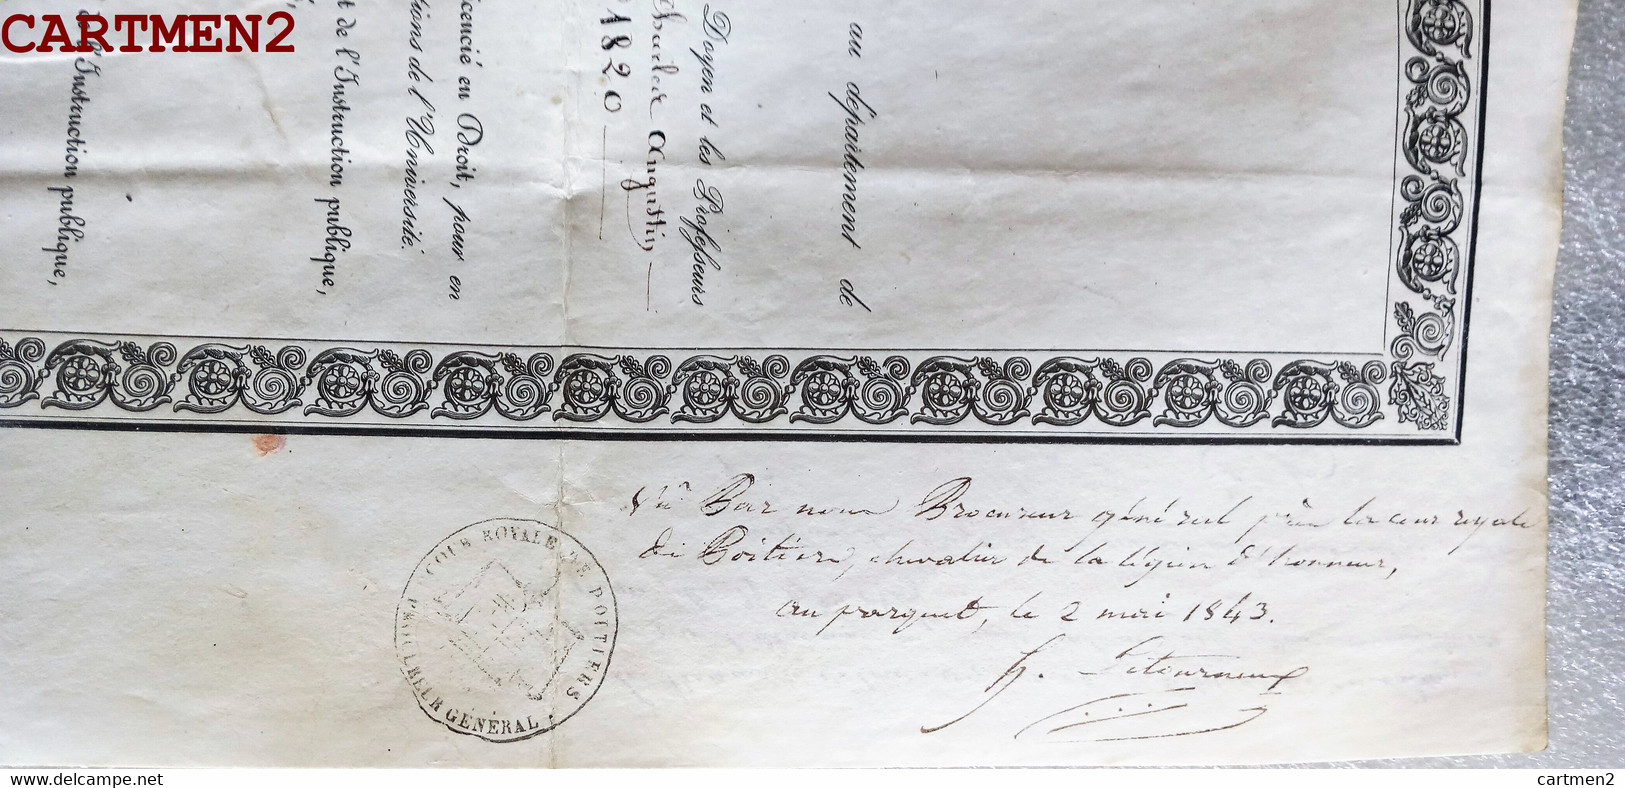 CARTMEN2
au département de
Doyen et les Professeurs
Charles Augustin
1820
icencié en Droit, pour en
tions de l'Université.
t de l'Instruction publique,
de l'Instruction publique,
Vu Par nous Procureur général près la cour royale
de Poitiers, chevalier de la légion d'honneur,
au parquet, le 2 mai 1843.
h. Letourneux
COUR ROYALE DE POITIERS
PROCUREUR GÉNÉRAL
www.delcampe.net
cartmen2